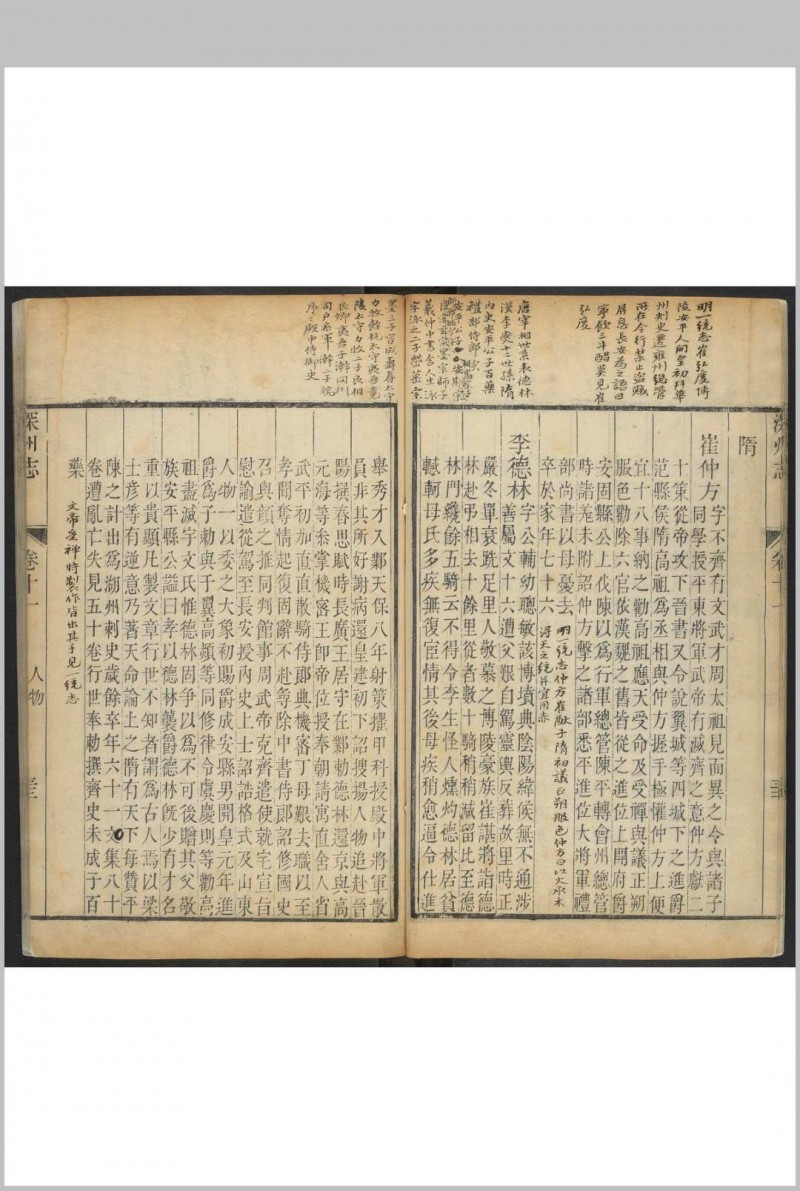 明一統志崔弘度博
陵安平人開皇初拜華
州刺史遷雍州總管
所在令行禁止盜賊
屏息長安為之語曰
寧飲三斗醋莫見崔
弘度
唐宰相世系表德林
漢李雲十二世孫隋
內史安平公子百藥
禮部侍郎
羲仲中書舍人生泳
深州志
卷十一
隋
崔仲方字不齊有文武才周太祖見而異之令與諸子
同學授平東將軍武帝有滅齊之意仲方獻二
十策從帝攻下晉書又令說翼城等四城下之進爵
范縣侯隋高祖為丞相與仲方握手極懽仲方上便
宜十八事納之勸高祖應天受命及受禪與議正朔
服色勸除六官依漢魏之舊皆從之進位上開府爵
安固縣公上伐陳以為行軍總管陳平轉會州總管
時諸羗未附詔仲方擊之諸部悉平進位大將軍禮
部尚書以母憂去
卒於家年七十六
明一統志仲方崔猷子隋初議正朔服色仲方曰以火承木
得天之統并宜用赤
李德林字公輔幼聰敏該博墳典陰陽緯候無不通涉
善屬文十六遭父艱自駕靈輿反葬故里時正
嚴冬單衰跣足里人敬慕之博陵豪族崔諶將詣德
林赴弔相去十餘里從者數十騎稍稍減留比至德
林門纔餘五騎云不得令李生怪人燻灼德林居貧
轗軻母氏多疾無復宦情其後母疾稍愈逼令仕進
墨三子官成壽春太守
力牧餘杭太守夷吾竟
陵太守力牧二子良相
良卿夷吾子澣同州
司戶參軍澣二子鏡
序序殿中侍御史
舉秀才入鄴天保八年射策擢甲科授殿中將軍散
員非其所好謝病還皇建初下詔搜揚人物追赴晉
陽撰春思賦時長廣王居守在鄴勅德林還京與高
元海等叅掌機密王卽帝位授奉朝請寓直舍人省
武平初加直散騎侍郞典機密丁母艱去職以至
孝聞奪情起復固辭不赴等除中書侍郞詔修國史
召與顏之推同判館事周武帝克齊遣使就宅宣旨
慰諭遣從駕至長安授內史上士詔誥格式及山東
人物一以委之大象初賜爵成安縣男開皇元年進
爵為子勅與于翼高熲等同修律令虞慶則等勸高
祖盡滅宇文氏惟德林固爭以為不可後贈其父敬
族安平縣公諡曰孝以德林襲爵德林旣少有才名
重以貴顯凡製文章行世不知者謂為古人焉以梁
士彥等有逆意乃著天命論上之隋有天下每贊平
陳之計出為湖州刺史歲餘卒年六十一文集八十
卷遭亂亡失見五十卷行世奉勅撰齊史未成子百
藥
文帝受禪時製作皆出其手見一統志
深州志
卷十一
人物